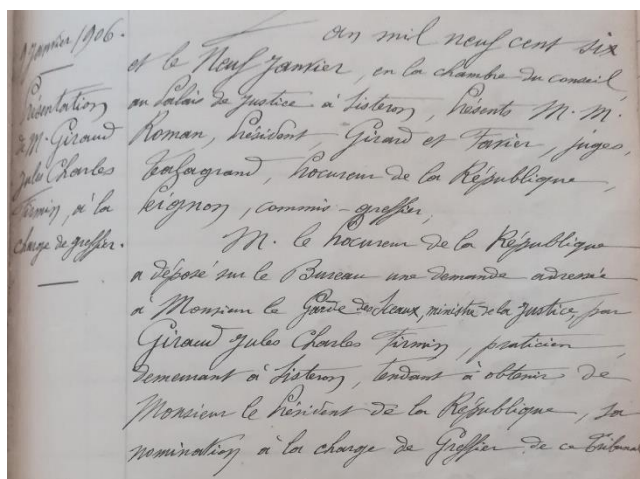 9 Janvier 1906.
Présentation
de M. Giraud
Jules Charles
Firmin, à la
charge de greffier.
An mil neuf cent six
et le Neuf Janvier, en la chambre du conseil,
au Palais de Justice à Sisteron, Présents M. M.
Roman, Président, Girard et Favier, juges,
Tafagrand, Procureur de la République,
Peignon, commis-greffier,
M. le Procureur de la République
a déposé sur le Bureau une demande adressée
à Monsieur le Garde des Sceaux, ministre de la Justice, par
Giraud Jules Charles Firmin, praticien,
demeurant à Sisteron, tendant à obtenir de
Monsieur le Président de la République, sa
nomination à la charge de Greffier de ce Tribunal